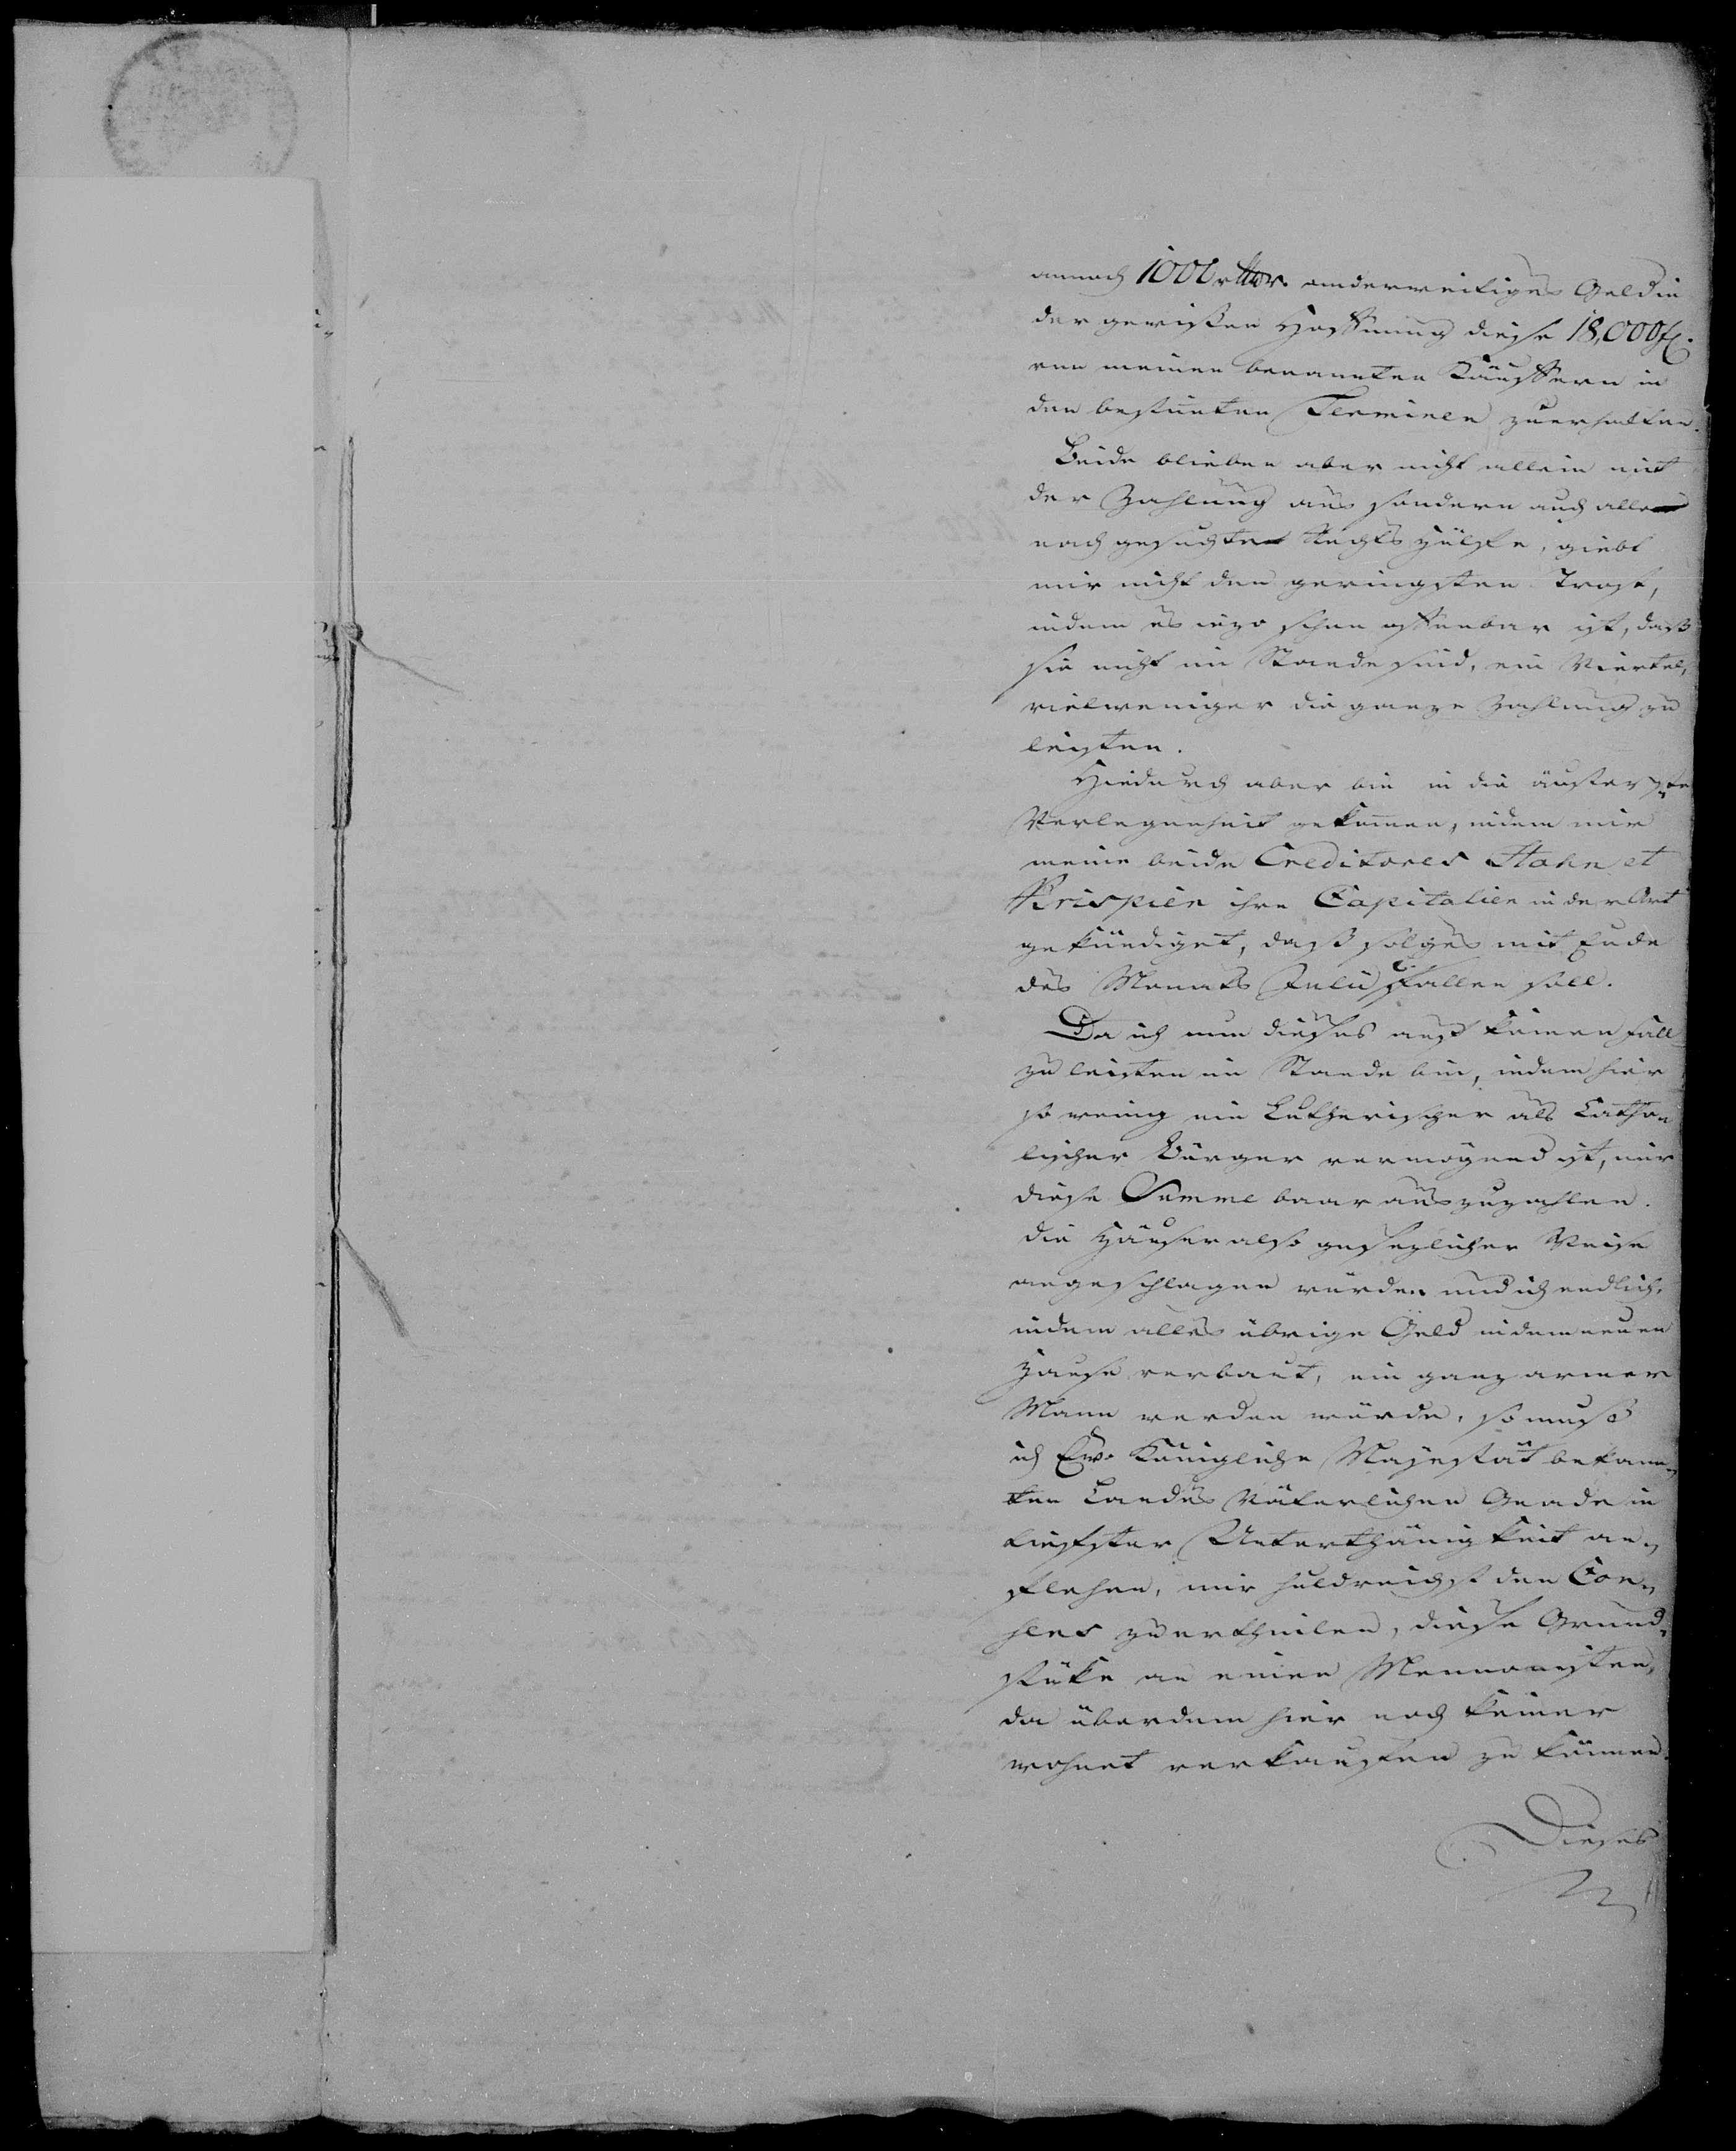 annoch 1000 rthlr. anderweitiges Geld in
der gewißen Hoffnung diese 18,000 f.
von meinen benannten Käuffern in
den bestimten Terminen zu erhalten.
Beide blieben aber nicht allein mit
der Zahlung aus sondern auch alle
nach gesuchte Rechts hülffe, giebt
mir nicht den geringsten Trost,
indem es iezo schon offenbar ist, daß
sie nicht im Stande sind, ein Viertel,
vielweniger die ganze Zahlung zu
leisten.
Hiedurch aber bin in die äußerste
Verlegenheit gekommen, indem mir
meine beide Creditores Hahn et
Krispien ihre Capitalien in der Art
gekündiget, daß solches mit Ende
des Monats Julii fallen soll.
Da ich nun dieses auf keinen Fall
zu leisten im Stande bin, indem hier
so wenig ein Lutherischer als Catho„
lischer Bürger vermögend ist, mir
diese Summe baar auszuzahlen.
die Häuser also gesezlicher Weise
angeschlagen würden und ich endlich,
indem alles übrige Geld in dem neuen
Hause verbaut, ein ganz armer
Mann werden würde, so muß
ich Ew. Königliche Majestät bekann„
ten Landes Väterlichen Gnade in
tiefster Unterthänigkeit an„
flehen, mir huldreichst den Con„
sens zu ertheilen, diese Grund„
stüke an einen Mennonisten,
da überdem hier noch keiner
wohnet verkauffen zu können.
Dieses